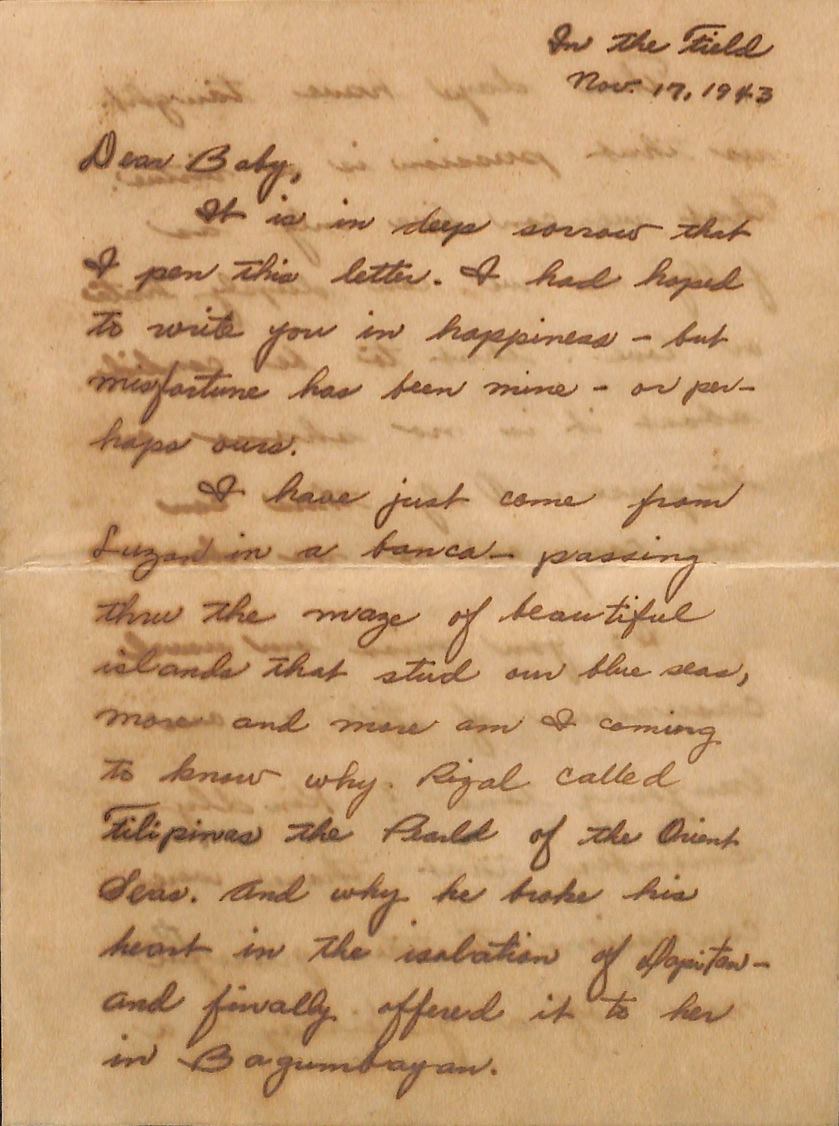 In the Field
Nov. 17, 1943
Dear Baby,
It is in deep sorrow that
I pen this letter. I had hoped
to write you in happiness - but
misfortune has been mine - or per-
haps ours.
I have just come from
Luzon in a banca - passing
thru the maze of beautiful
islands that stud our blue seas,
more and more am I coming
to know why Rizal called
Filipinas the Pearld of the Orient
Seas. And why he broke his
heart in the isolation of Dapitan -
and finally offered it to her
in Bagumbayan.